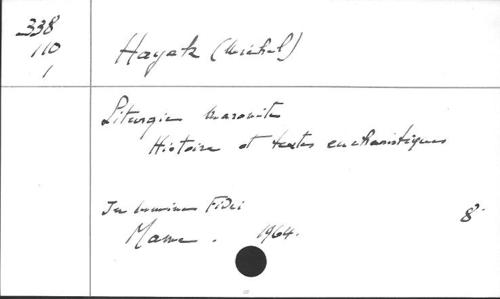 338
110
1
Hayek (Michel)
Liturgie maronite
Histoire et textes eucharistiques
In lumine Fidei
8°
Mame. 1964.